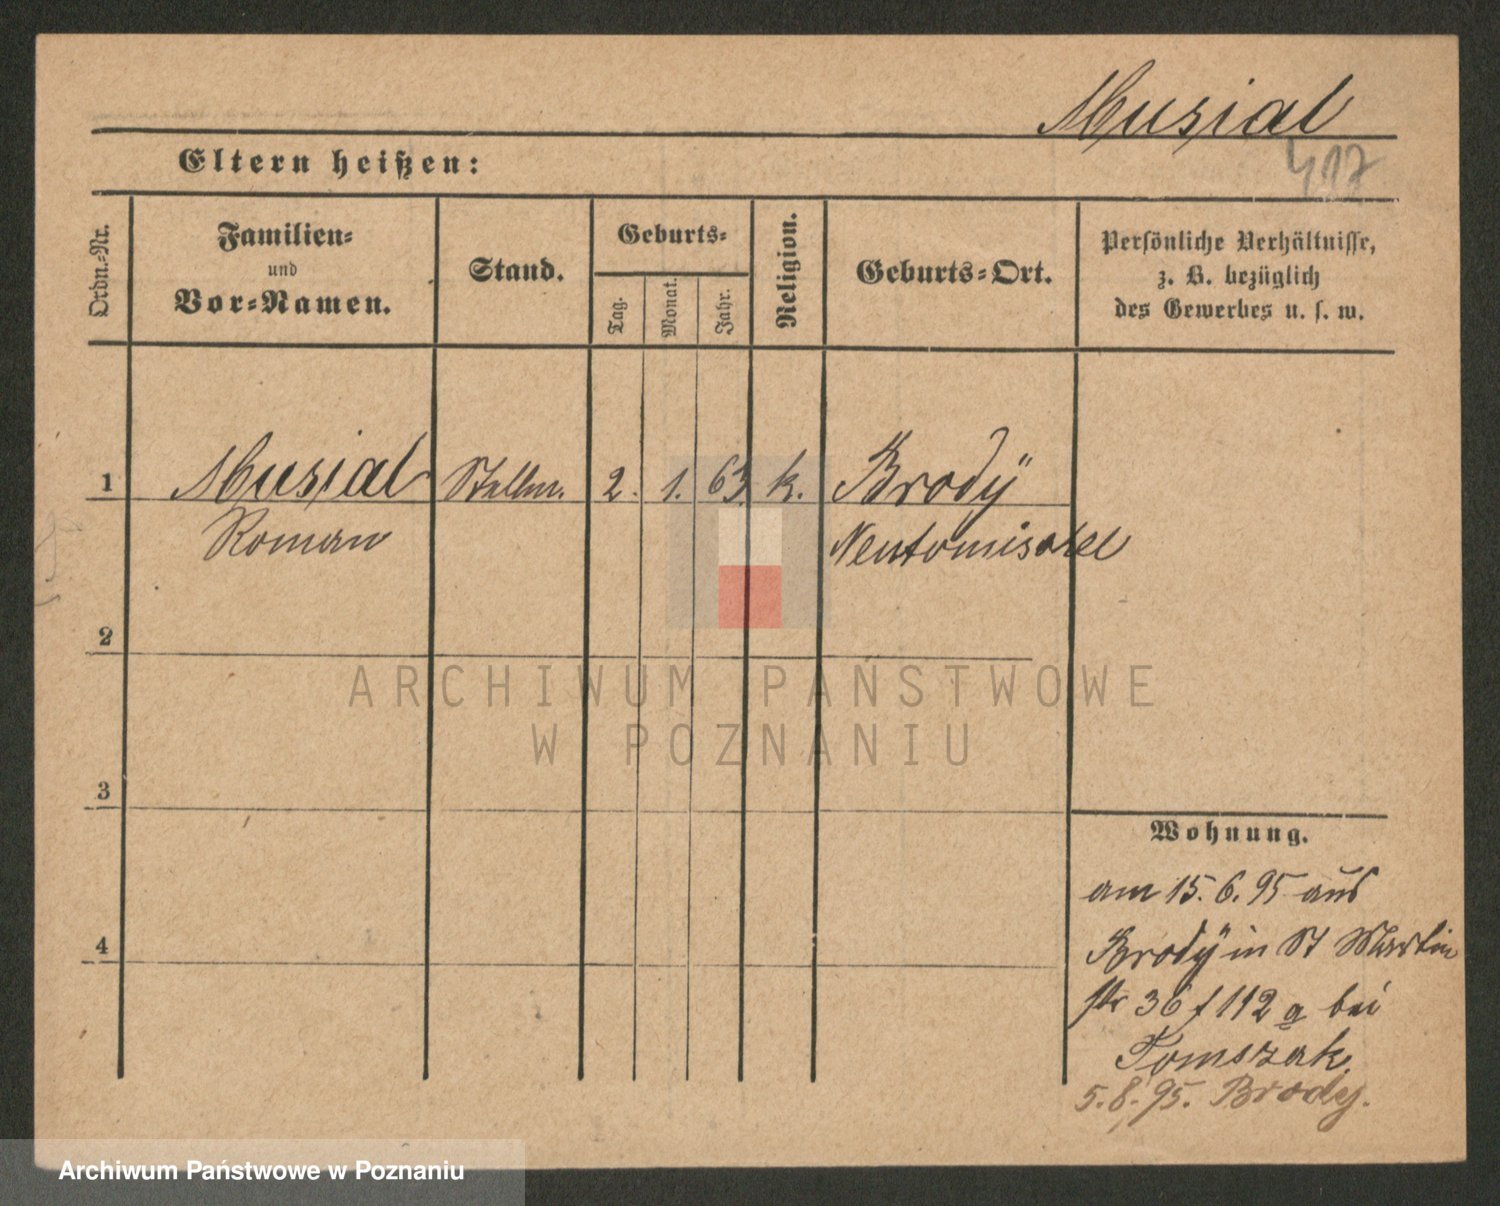 Musial
417
Eltern heißen:
Ordn.-Nr.
Familien-
und
Vor-Namen.
Stand.
Geburts-
Tag.
Monat.
Jahr.
Religion.
Geburts-Ort.
Persönliche Verhältnisse,
z. B. bezüglich
des Gewerbes u. s. w.
1 Musial Stellm. 2. 1. 63 k. Brodÿ
Roman Neutomischel
2
ARCHIWUM PAŃSTWOWE
W POZNANIU
3
Wohnung.
am 15.6.95 aus
4
Brodÿ in St Martin
str 36 f 112 a bei
Tomszak
5.8.95. Brody.
Archiwum Państwowe w Poznaniu